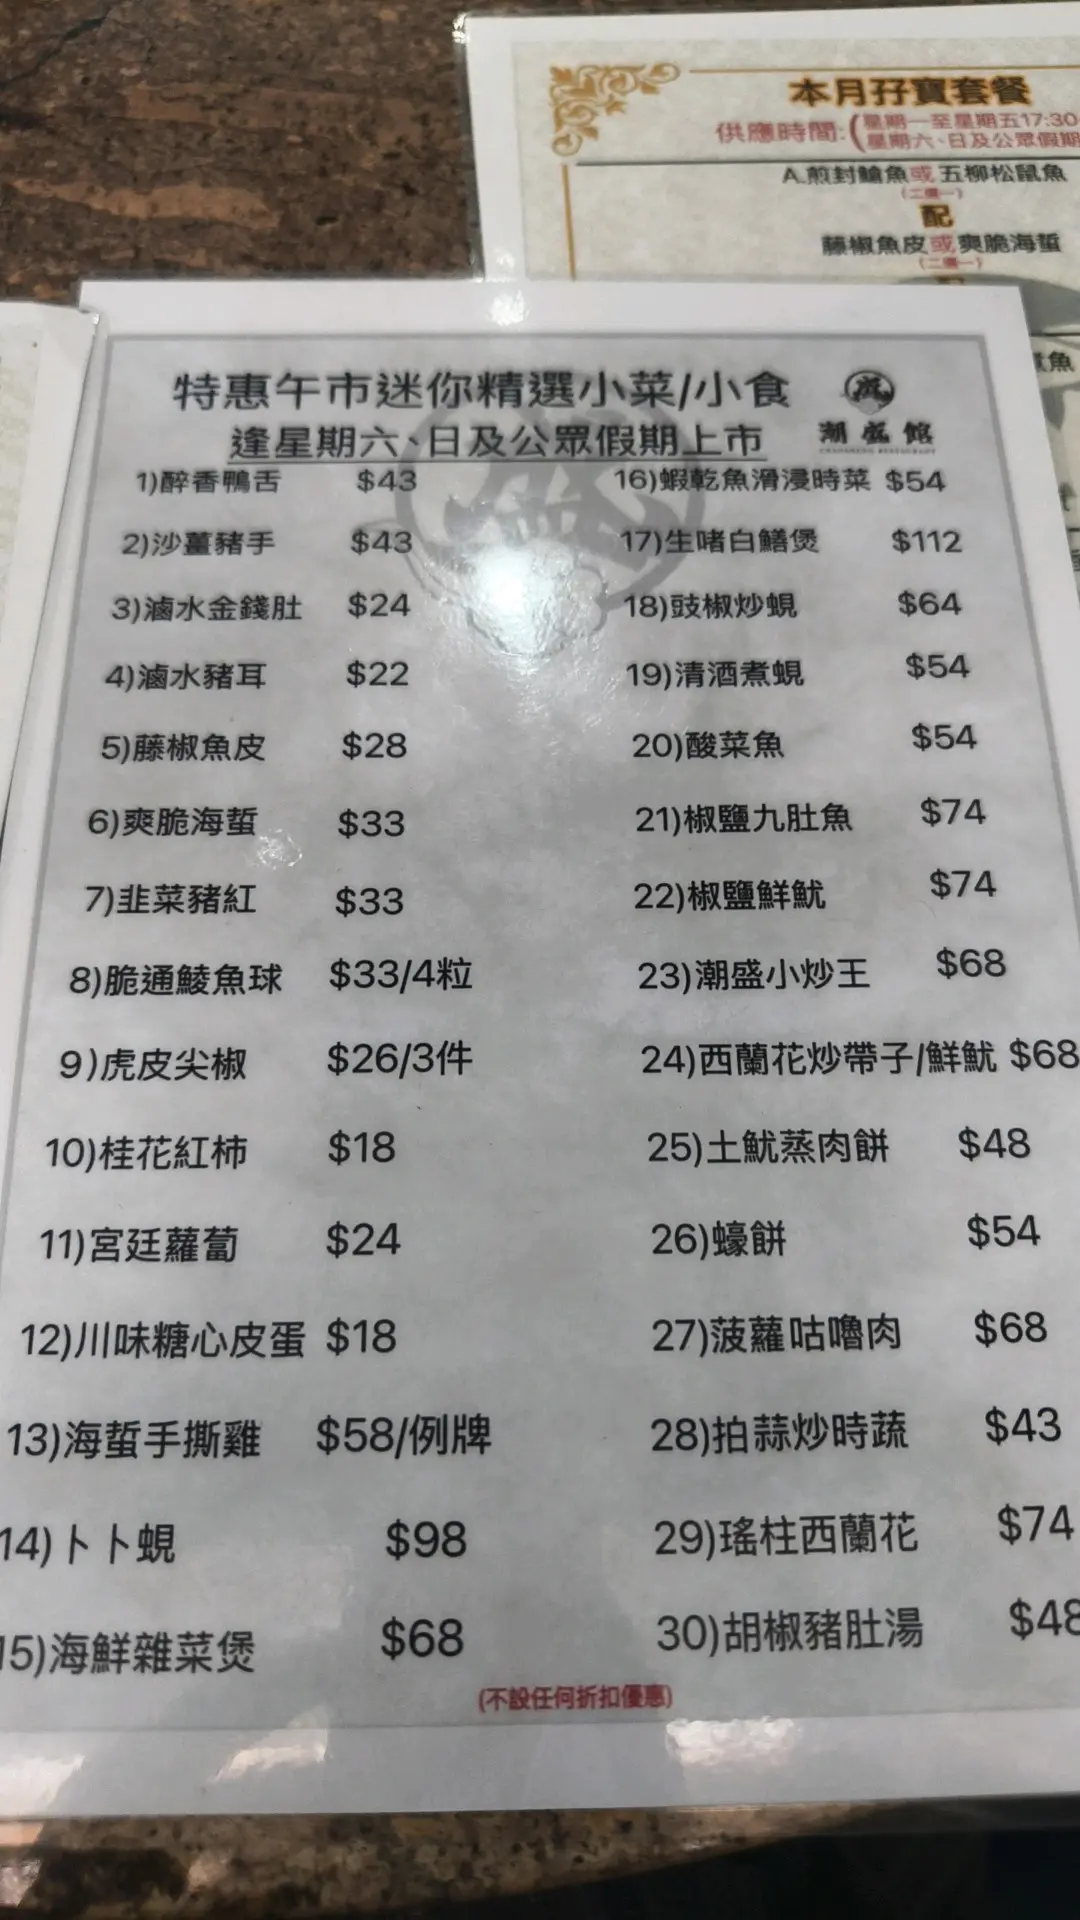 本月孖寶套餐
供應時間:(星期一至星期五17:30
星期六、日及公眾假期
A.煎封鱠魚或五柳松鼠魚
(二選一)
配
藤椒魚皮或爽脆海蜇
(二選一)
魚
特惠午市迷你精選小菜/小食
逢星期六、日及公眾假期上市
潮盛館
1)醉香鴨舌 $43
2)沙薑豬手 $43
3)滷水金錢肚 $24
4)滷水豬耳 $22
5)藤椒魚皮 $28
6)爽脆海蜇 $33
7)韭菜豬紅 $33
8)脆通鯪魚球 $33/4粒
9)虎皮尖椒 $26/3件
10)桂花紅柿 $18
11)宮廷蘿蔔 $24
12)川味糖心皮蛋 $18
13)海蜇手撕雞 $58/例牌
14)卜卜蜆 $98
15)海鮮雜菜煲 $68
16)蝦乾魚滑浸時菜 $54
17)生啫白鱔煲 $112
18)豉椒炒蜆 $64
19)清酒煮蜆 $54
20)酸菜魚 $54
21)椒鹽九肚魚 $74
22)椒鹽鮮魷 $74
23)潮盛小炒王 $68
24)西蘭花炒帶子/鮮魷 $68
25)土魷蒸肉餅 $48
26)蠔餅 $54
27)菠蘿咕嚕肉 $68
28)拍蒜炒時蔬 $43
29)瑤柱西蘭花 $74
30)胡椒豬肚湯 $48
(不設任何折扣優惠)